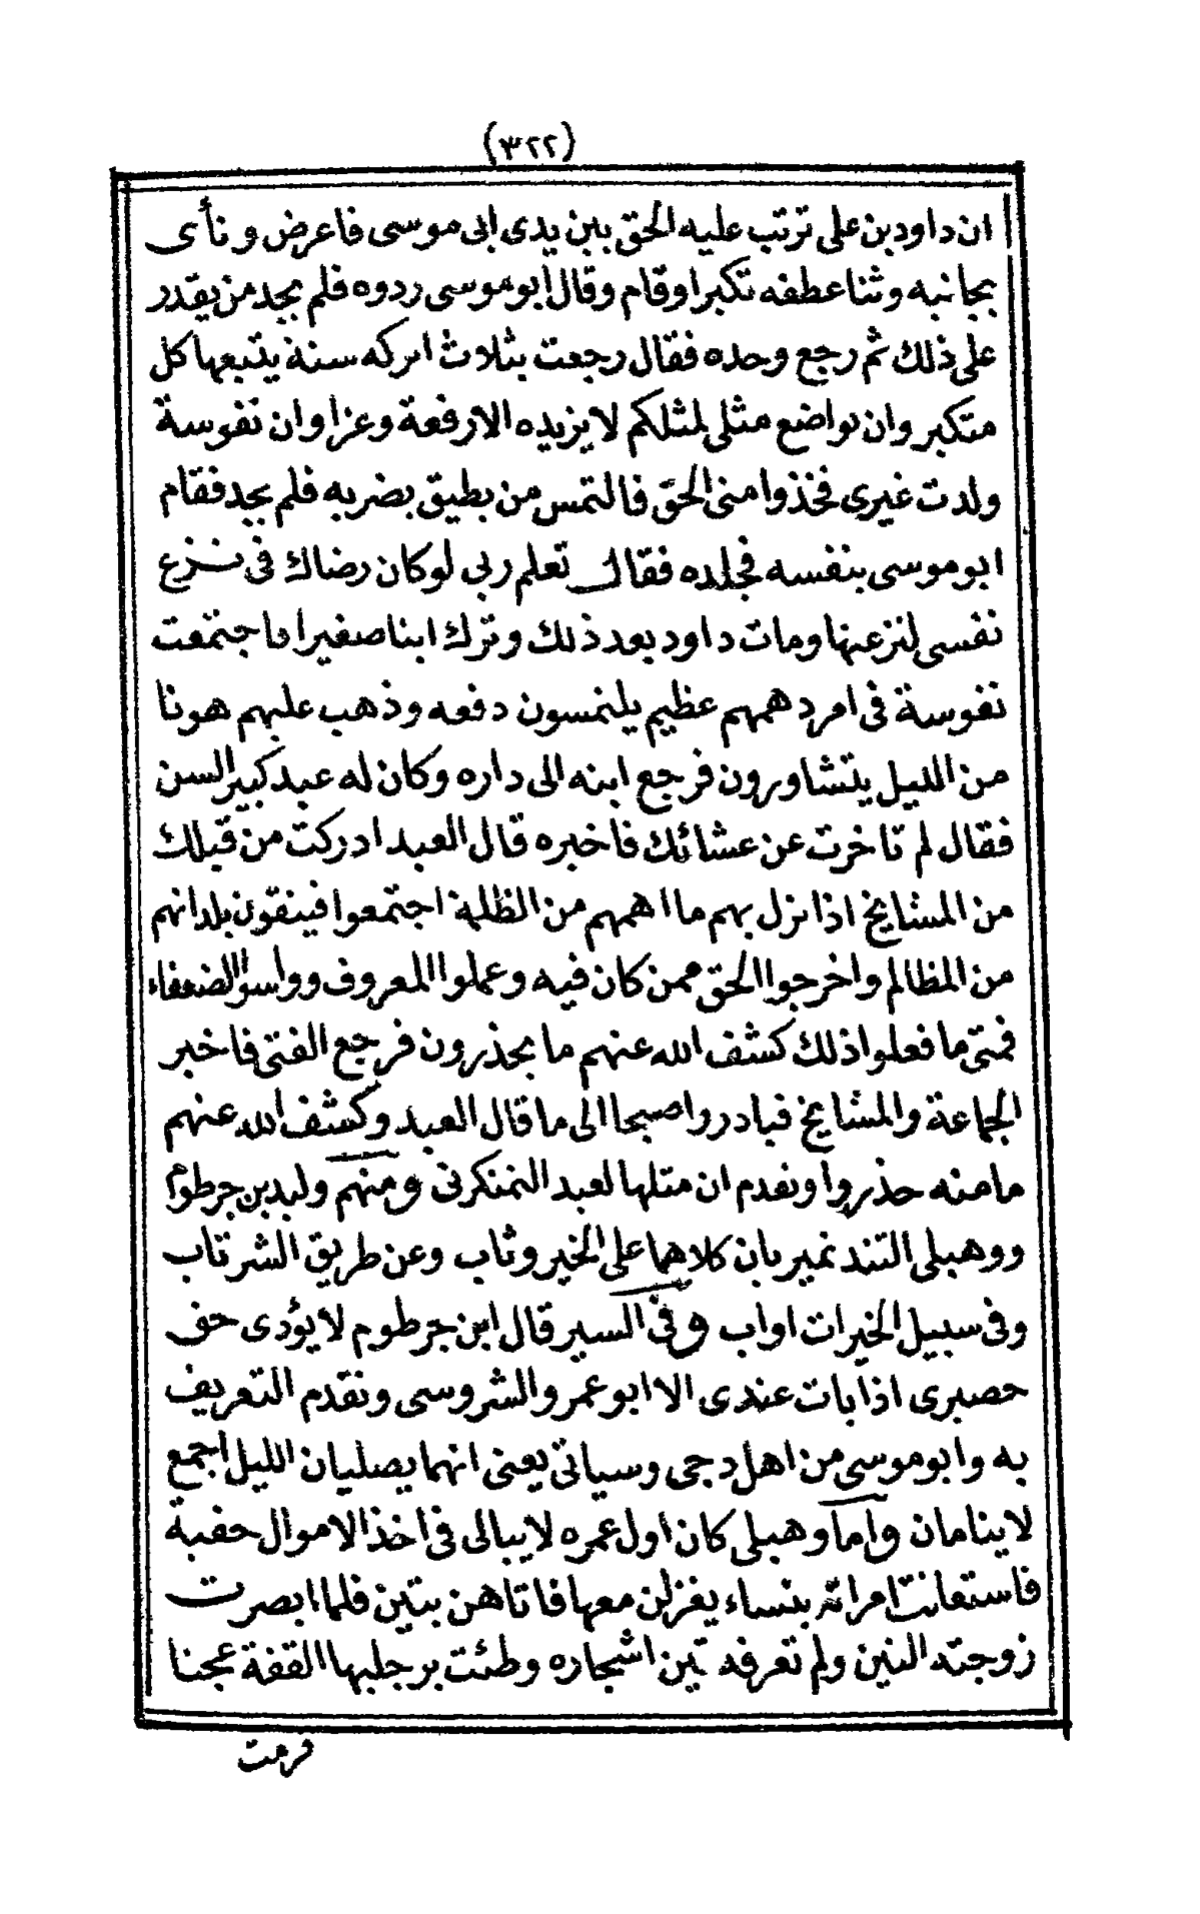 (٣٢٢)
ان داود بن على ترتب عليه الحق بين يدى ابى موسى فاعرض ونأى
بجانبه وثنا عطفه تكبرا وقام وقال ابو موسى ردوه فلم يجد من يقدر
على ذلك ثم رجع وحده فقال رجعت بثلاث اتركه سنة يتبعها كل
متكبر وان تواضع مثلى لمثلكم لا يزيده الا رفعة وعزا وان نفوسة
ولدت غيرى فخذوا منى الحق فالتمس من يطيق بضربه فلم يجد فقام
ابو موسى بنفسه فجلده فقال تعلم ربى لو كان رضاك فى نزع
نفسى لنزعتها ومات داود بعد ذلك وترك ابنا صغيرا فاجتمعت
نفوسة فى امر دهمهم عظيم يلتمسون دفعه وذهب عليهم هونا
من الليل يتشاورون فرجع ابنه الى داره وكان له عبد كبير السن
فقال لم تاخرت عن عشائك فاخبره قال العبد ادركت من قبلك
من المشايخ اذا نزل بهم ما اهمهم من الظلمة اجتمعوا فينقون بلدانهم
من المظالم واخرجوا الحق ممن كان فيه وعملوا المعروف وواسوا الضعفاء
فمتى ما فعلوا ذلك كشف الله عنهم ما يحذرون فرجع الفتى فاخبر
الجماعة والمشايخ فبادروا صبحا الى ما قال العبد وكشف الله عنهم
ما منه حذروا وتقدم ان مثلها لعبد التمنكرتى ومنهم وليد بن جرطوم
ووهبلى التندنميريان كلاهما على الخير وثاب وعن طريق الشر تاب
وفى سبيل الخيرات اواب وفى السير قال ابن جرطوم لا يؤدى حق
حصيرى اذا بات عندى الا ابو عمرو الشروسى وتقدم التعريف
به وابو موسى من اهل دجى وسياتى يعنى انهما يصليان الليل اجمع
لا ينامان واما وهبلى كان اول عمره لا يبالى فى اخذ الاموال حقبة
فاستعانت امراته بنساء يغزلن معها فاتاهن بتين فلما ابصرت
زوجته التين ولم تعرفه تين اشجاره وطئت برجليها القفة عجنا
فرمت